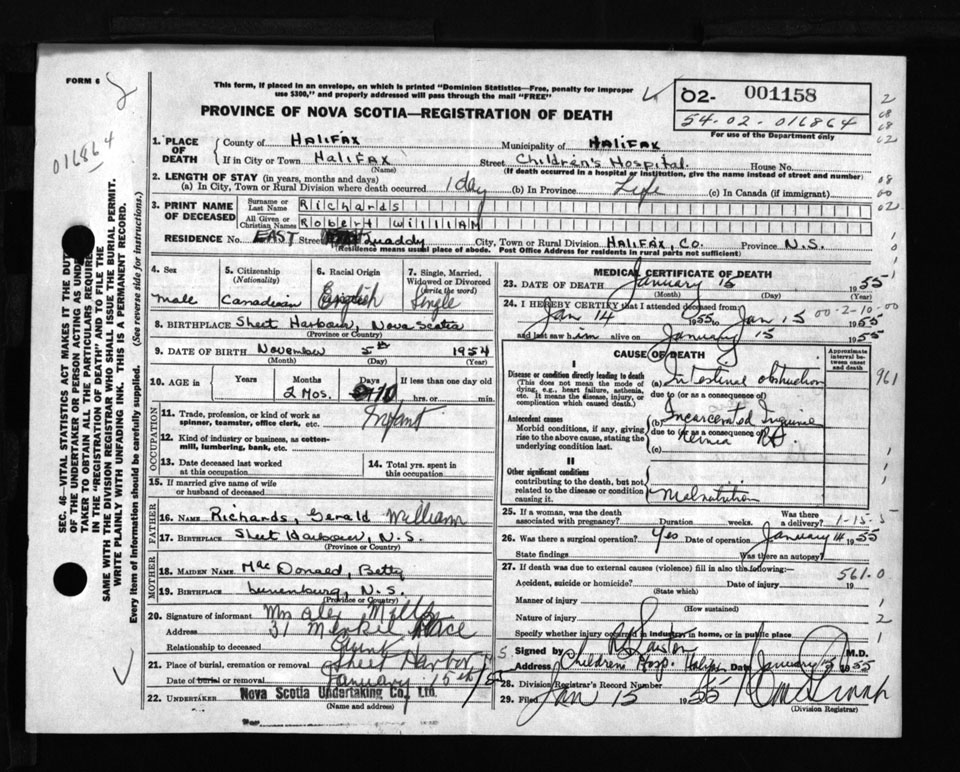 FORM 6
2
016864
This form, if placed in an envelope, on which is printed "Dominion Statistics—Free, penalty for improper
use $300," and properly addressed will pass through the mail "FREE"
PROVINCE OF NOVA SCOTIA—REGISTRATION OF DEATH
02- 001158
54-02-016864
For use of the Department only
1. PLACE OF DEATH
County of Halifax Municipality of Halifax
If in City or Town Halifax Street Children's Hospital. House No.
(Name) (If death occurred in a hospital or institution, give the name instead of street and number)
2. LENGTH OF STAY (in years, months and days)
(a) In City, Town or Rural Division where death occurred 1 day (b) In Province Life (c) In Canada (if immigrant)
3. PRINT NAME OF DECEASED
Surname or Last Name Richards
All Given or Christian Names Robert William
RESIDENCE No. EAST Street Quaddy City, Town or Rural Division HALIFAX, CO. Province N.S.
(Residence means usual place of abode. Post Office Address for residents in rural parts not sufficient)
4. Sex
male
5. Citizenship (Nationality)
Canadian
6. Racial Origin
English
7. Single, Married, Widowed or Divorced (Write the word)
Single
8. BIRTHPLACE Sheet Harbour, Nova Scotia
(Province or Country)
9. DATE OF BIRTH November 5th 1954
(Month) (Day) (Year)
10. AGE in Years Months Days If less than one day old
2 Mos. 10 hrs. or min.
OCCUPATION
11. Trade, profession, or kind of work as spinner, teamster, office clerk, etc. Infant
12. Kind of industry or business, as cotten-mill, lumbering, bank, etc.
13. Date deceased last worked at this occupation
14. Total yrs. spent in this occupation
15. If married give name of wife or husband of deceased
FATHER
16. NAME Richards, Gerald William
17. BIRTHPLACE Sheet Harbour, N.S.
(Province or Country)
MOTHER
18. MAIDEN NAME MacDonald, Betty
19. BIRTHPLACE Lunenburg, N.S.
(Province or Country)
20. Signature of informant
Address 31
Relationship to deceased Aunt
21. Place of burial, cremation or removal Sheet Harbor N.S.
Date of burial or removal January 15th/55
22. UNDERTAKER Nova Scotia Undertaking Co., Ltd.
(Name and address)
MEDICAL CERTIFICATE OF DEATH
23. DATE OF DEATH January 15 1955
(Month) (Day) (Year)
24. I HEREBY CERTIFY that I attended deceased from
Jan 14 1955 to Jan 15 1955
00-2-10-00
and last saw him alive on January 15 1955
CAUSE OF DEATH
Approximate interval between onset and death
I
Disease or condition directly leading to death
(This does not mean the mode of dying, e.g., heart failure, asthenia, etc. It means the disease, injury, or complication which caused death.)
(a) Intestinal obstruction
due to (or as a consequence of)
Antecedent causes
Morbid conditions, if any, giving rise to the above cause, stating the underlying condition last.
(b) Incarcerated Inguinal
due to (or as a consequence of)
Hernia Rt.
(c)
II
Other significant conditions
contributing to the death, but not related to the disease or condition causing it.
Malnutrition
961
25. If a woman, was the death associated with pregnancy? Duration weeks. Was there a delivery?
1-15-5
26. Was there a surgical operation? Yes Date of operation January 14 1955
State findings Was there an autopsy?
27. If death was due to external causes (violence) fill in also the following:—
561.0
Accident, suicide or homicide? Date of injury 19
(State which)
Manner of injury
(How sustained)
Nature of injury
Specify whether injury occurred in industry, in home, or in public place
Signed by M.D.
Address Children's Hosp. Halifax Date January 15 1955
28. Division Registrar's Record Number
29. Filed Jan 15 1955
(Division Registrar)
SEC. 46—VITAL STATISTICS ACT MAKES IT THE DUTY
OF THE UNDERTAKER OR PERSON ACTING AS UNDER-
TAKER TO OBTAIN ALL THE PARTICULARS REQUIRED
IN THE "REGISTRATION OF DEATH" AND TO FILE THE
SAME WITH THE DIVISION REGISTRAR WHO SHALL ISSUE THE BURIAL PERMIT.
WRITE PLAINLY WITH UNFADING INK. THIS IS A PERMANENT RECORD.
Every item of information should be carefully supplied. (See reverse side for instructions.)